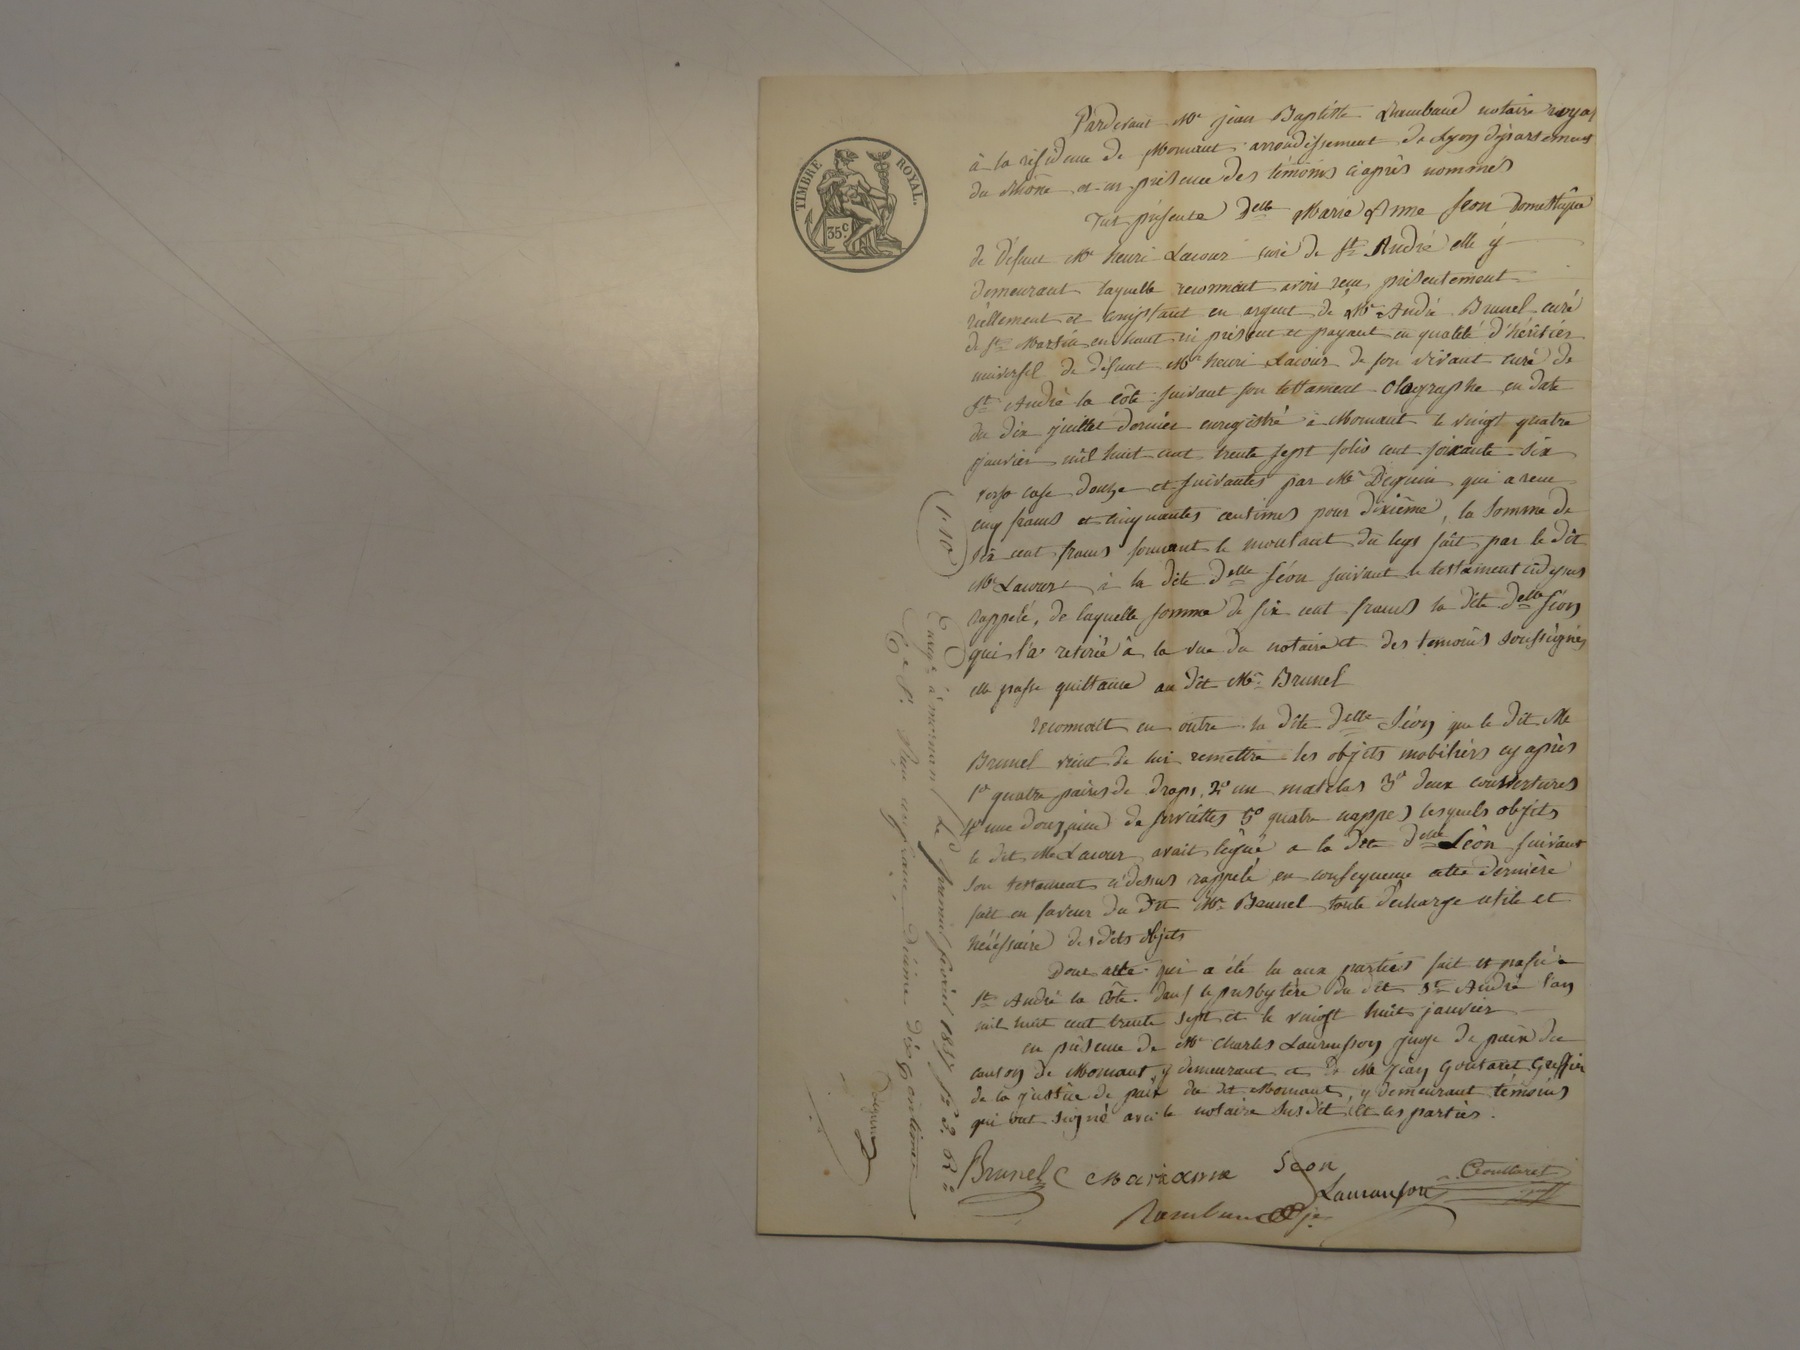 TIMBRE ROYAL.
35 c.
Pardevant Me jean Baptiste Rambaud notaire royal
à la résidence de Mornant arrondissement de Lyon département
du Rhône et en présence des témoins ciaprès nommés
Fut présente Delle Marie Anne Séon domestique
de défunt Mr henri Lacour curé de St André elle y
demeurant laquelle reconnait avoir reçu présentement
réellement et comptant en argent de Mr André Brunel curé
de St Martin en haut ici présent et payant en qualité d'héritier
universel de défunt Mr henri Lacour de son vivant curé de
St André la côte suivant son testament olographe en date
du dix juillet dernier enregistré à Mornant le vingt quatre
janvier mil huit cent trente sept folio cent soixante six
verso case douze et suivantes par Mr Deguin qui a recu
cinq francs et cinquantes centimes pour dixième, la somme de
six cent francs formant le montant du legs fait par le dit
Mr Lacour à la dite Delle Séon suivant le testament cidessus
rappelé, de laquelle somme de six cent francs la dite Delle Séon
qui l'a retirée à la vue du notaire et des temoins soussignés
elle passe quittance au dit Mr Brunel
reconnait en outre la dite Delle Séon que le dit Me
Brunel vient de lui remettre les objets mobiliers cy après
1° quatre paires de draps, 2° un matelas 3° deux couvertures
4° une douzaine de serviettes 5° quatre nappes lesquels objets
le dit Me Lacour avait légué a la dite Delle Séon suivant
son testament cidessus rappelé en consequence cette dernière
fait en faveur du dit Mr Brunel toute décharge utile et
nécéssaire desdits objets
Dont acte qui a été lu aux parties fait et passé à
St André la Côte dans le presbytère du dit St André l'an
mil huit cent trente sept et le vingt huit janvier
en présence de Mr Charles Lauranson juge de paix du
canton de Mornant y demeurant et de Me jean Goutaret Greffier
de la justice de paix du dt Mornant, y demeurant témoins
qui ont signé avec le notaire susdit et les parties.
Brunel c Marianne Séon
Lauranson Gouttaret
Rambaud je
1.10
Enregé à mornant le premier février 1837 f° 3. R°
C. Reçu un franc dixième dix centimes
Deguin